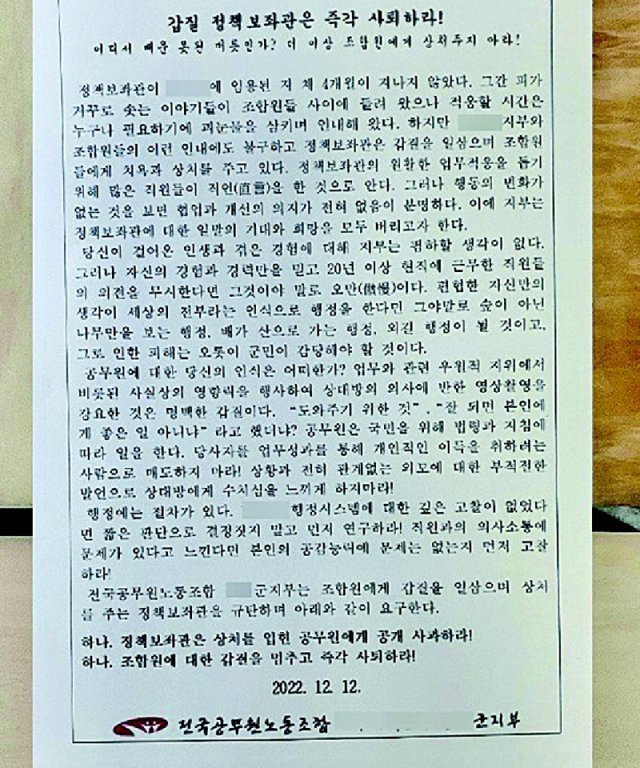 갑질 정책보좌관은 즉각 사퇴하라!
어디서 배운 못된 버릇인가? 더 이상 조합원에게 상처주지 마라!
정책보좌관이 에 임용된 지 채 4개월이 지나지 않았다. 그간 피가
거꾸로 솟는 이야기들이 조합원들 사이에 들려 왔으나 적응할 시간은
누구나 필요하기에 피눈물을 삼키며 인내해 왔다. 하지만 지부와
조합원들의 이런 인내에도 불구하고 정책보좌관은 갑질을 일삼으며 조합원
들에게 치욕과 상처를 주고 있다. 정책보좌관의 원활한 업무적응을 돕기
위해 많은 직원들이 직언(直言)을 한 것으로 안다. 그러나 행동의 변화가
없는 것을 보면 협업과 개선의 의지가 전혀 없음이 분명하다. 이에 지부는
정책보좌관에 대한 일말의 기대와 희망을 모두 버리고자 한다.
당신이 걸어온 인생과 겪은 경험에 대해 지부는 폄하할 생각이 없다.
그러나 자신의 경험과 경력만을 믿고 20년 이상 현직에 근무한 직원들
의 의견을 무시한다면 그것이야 말로 오만(傲慢)이다. 편협한 자신만의
생각이 세상의 전부라는 인식으로 행정을 한다면 그야말로 숲이 아닌
나무만을 보는 행정, 배가 산으로 가는 행정, 외진 행정이 될 것이고,
그로 인한 피해는 오롯이 군민이 감당해야 할 것이다.
공무원에 대한 당신의 인식은 어떠한가? 업무와 관련 우월적 지위에서
비롯된 사실상의 영향력을 행사하여 상대방의 의사에 반한 영상촬영을
강요한 것은 명백한 갑질이다. “도와주기 위한 것”, “잘 되면 본인에
게 좋은 일 아니냐” 라고 했더냐? 공무원은 국민을 위해 법령과 지침에
따라 일을 한다. 당사자를 업무성과를 통해 개인적인 이득을 취하려는
사람으로 매도하지 마라! 상황과 전혀 관계없는 외모에 대한 부적절한
발언으로 상대방에게 수치심을 느끼게 하지마라!
행정에는 절차가 있다. 행정시스템에 대한 깊은 고찰이 없었다
면 짧은 판단으로 결정짓지 말고 먼저 연구하라! 직원과의 의사소통에
문제가 있다고 느낀다면 본인의 공감능력에 문제는 없는지 먼저 고찰
하라!
전국공무원노동조합 군지부는 조합원에게 갑질을 일삼으며 상처
를 주는 정책보좌관을 규탄하며 아래와 같이 요구한다.
하나. 정책보좌관은 상처를 입힌 공무원에게 공개 사과하라!
하나. 조합원에 대한 갑질을 멈추고 즉각 사퇴하라!
2022. 12. 12.
전국공무원노동조합 군지부